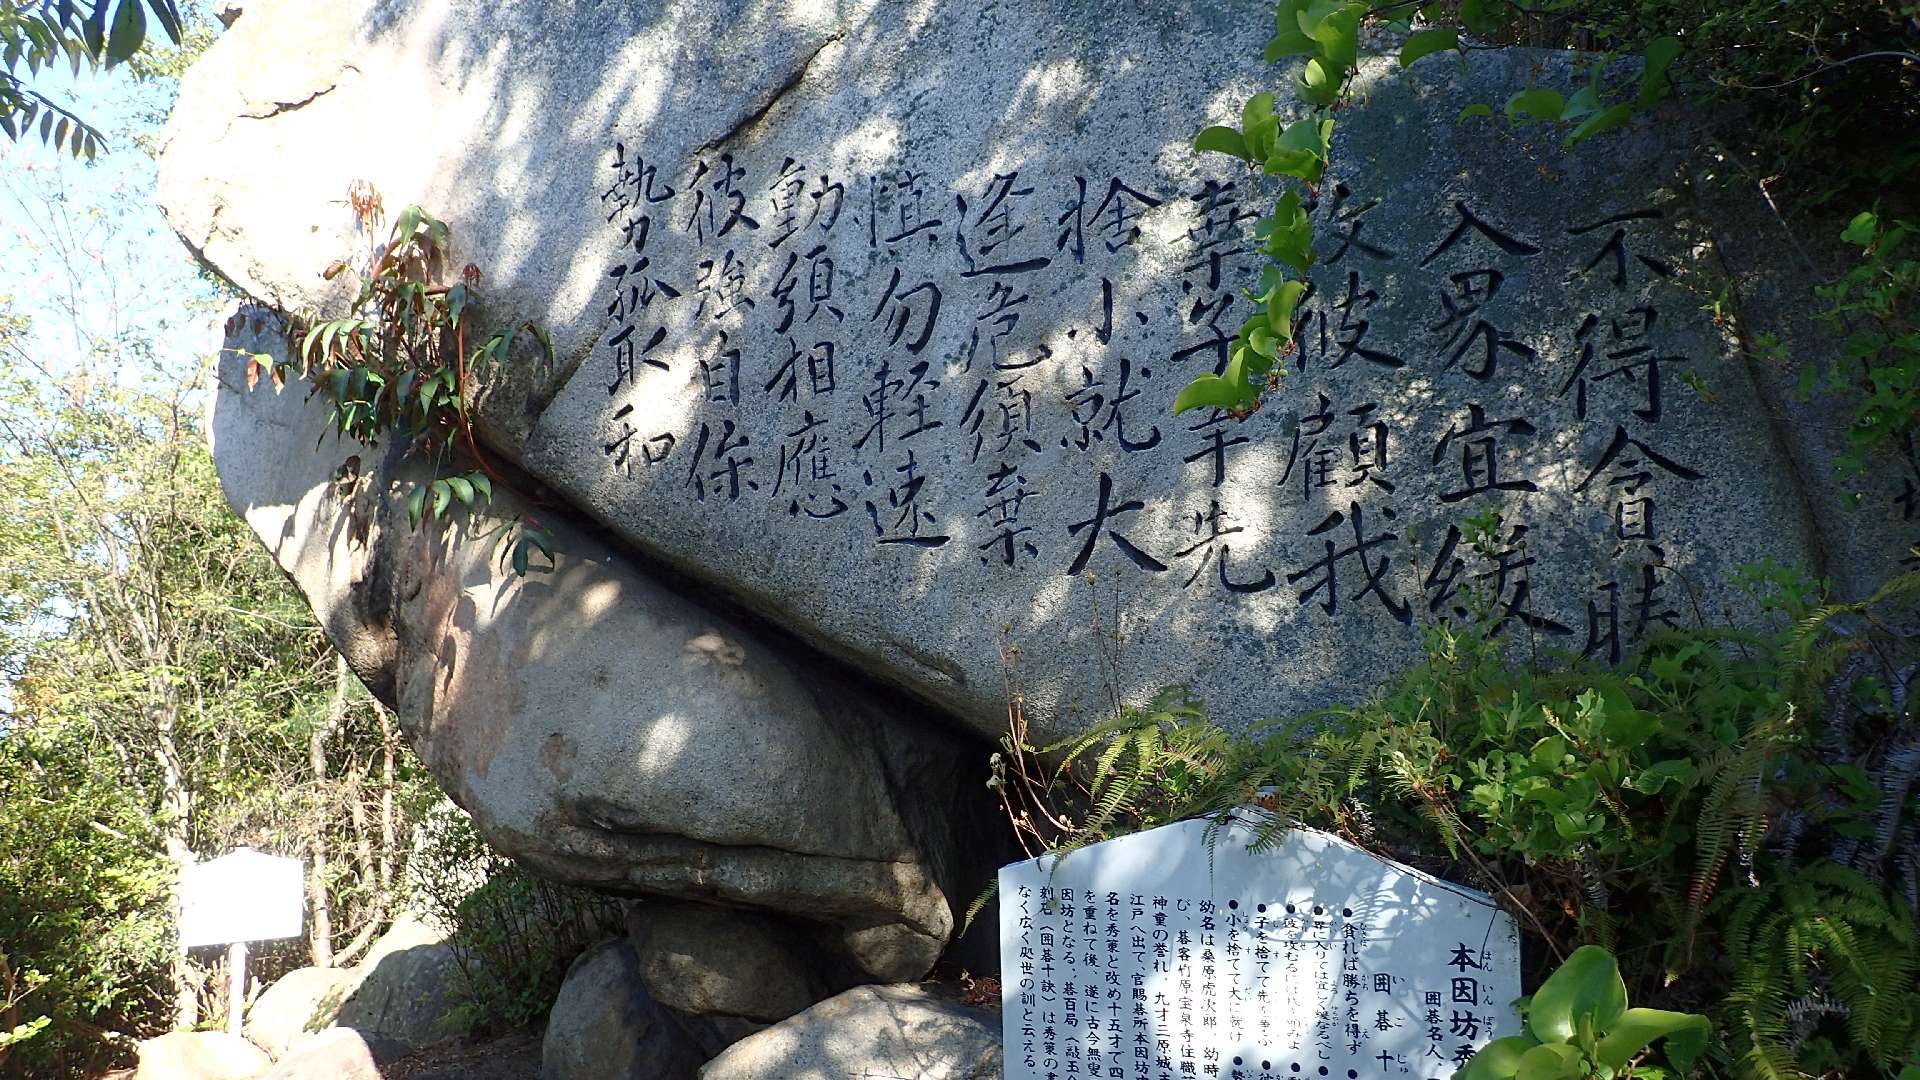 不得貪勝
入界宜緩
攻彼顧我
棄子争先
捨小就大
逢危須棄
慎勿軽速
動須相應
彼強自保
勢孤取和
本因坊秀
囲碁名人、
囲碁十
●貪れば勝ちを得ず
●界に入りては宜しく緩なるべし
●彼を攻むるには我を顧みよ
●子を捨てて先を争ふ
●小を捨てて大に就け
幼名は桑原虎次郎、幼時
び、碁客竹原宝泉寺住職
神童の誉れ、九才三原城主
江戸へ出て、官賜碁所本因坊
名を秀策と改め十五才で四
を重ねて後、遂に古今無叟
因坊となる。碁百局〈敲玉
刻石〈囲碁十訣〉は秀策の書
なく広く処世の訓と云える。